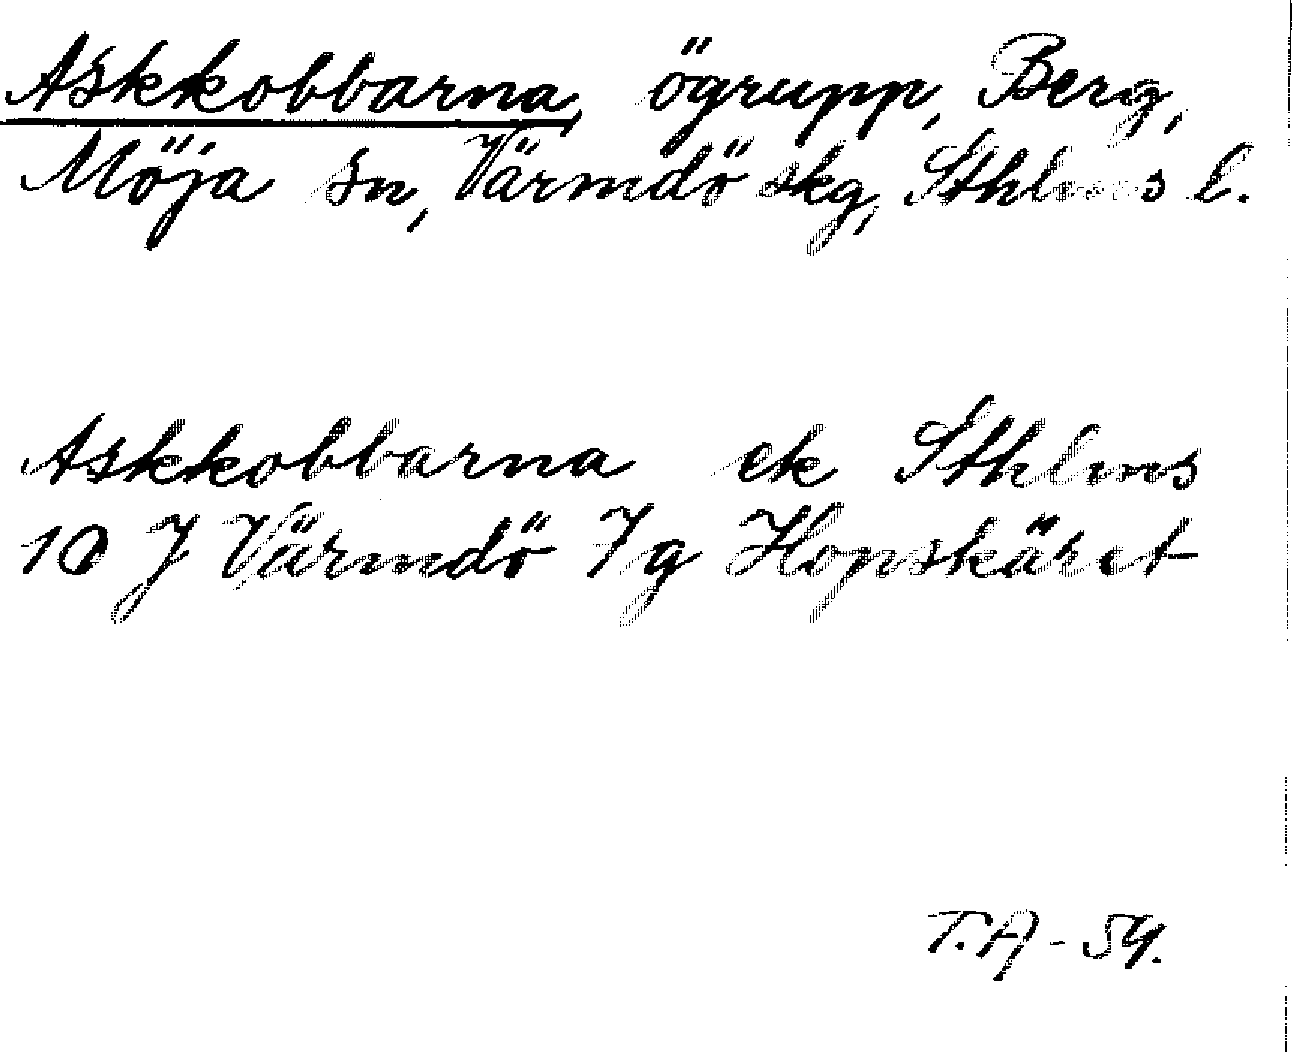 Askkobbarna, ögrupp, Berg,
Möja sn, Värmdö skg, Sthlms l.
Askkobbarna ek Sthlms
10 J Värmdö 7 g Hopskäret
T.A - 54.